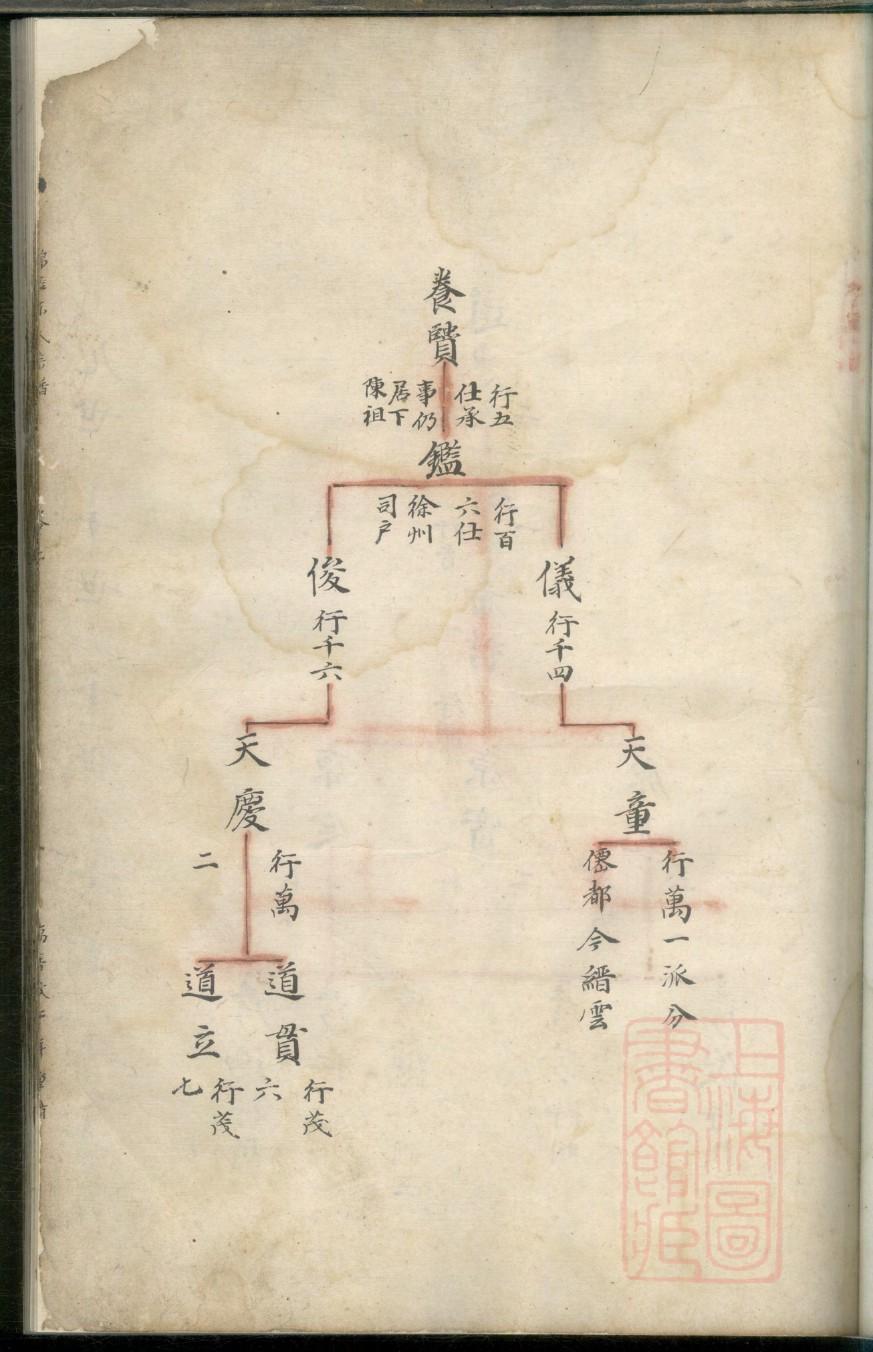 養賢
行五
仕承
事仍
居下
陳祖
鑑
行百
六仕
徐州
司户
儀 行千四
俊 行千六
天童
行萬一派分
僊都今縉雲
天慶
行萬
二
道貫
行茂
六
道立
行茂
七
上海圖
書館藏